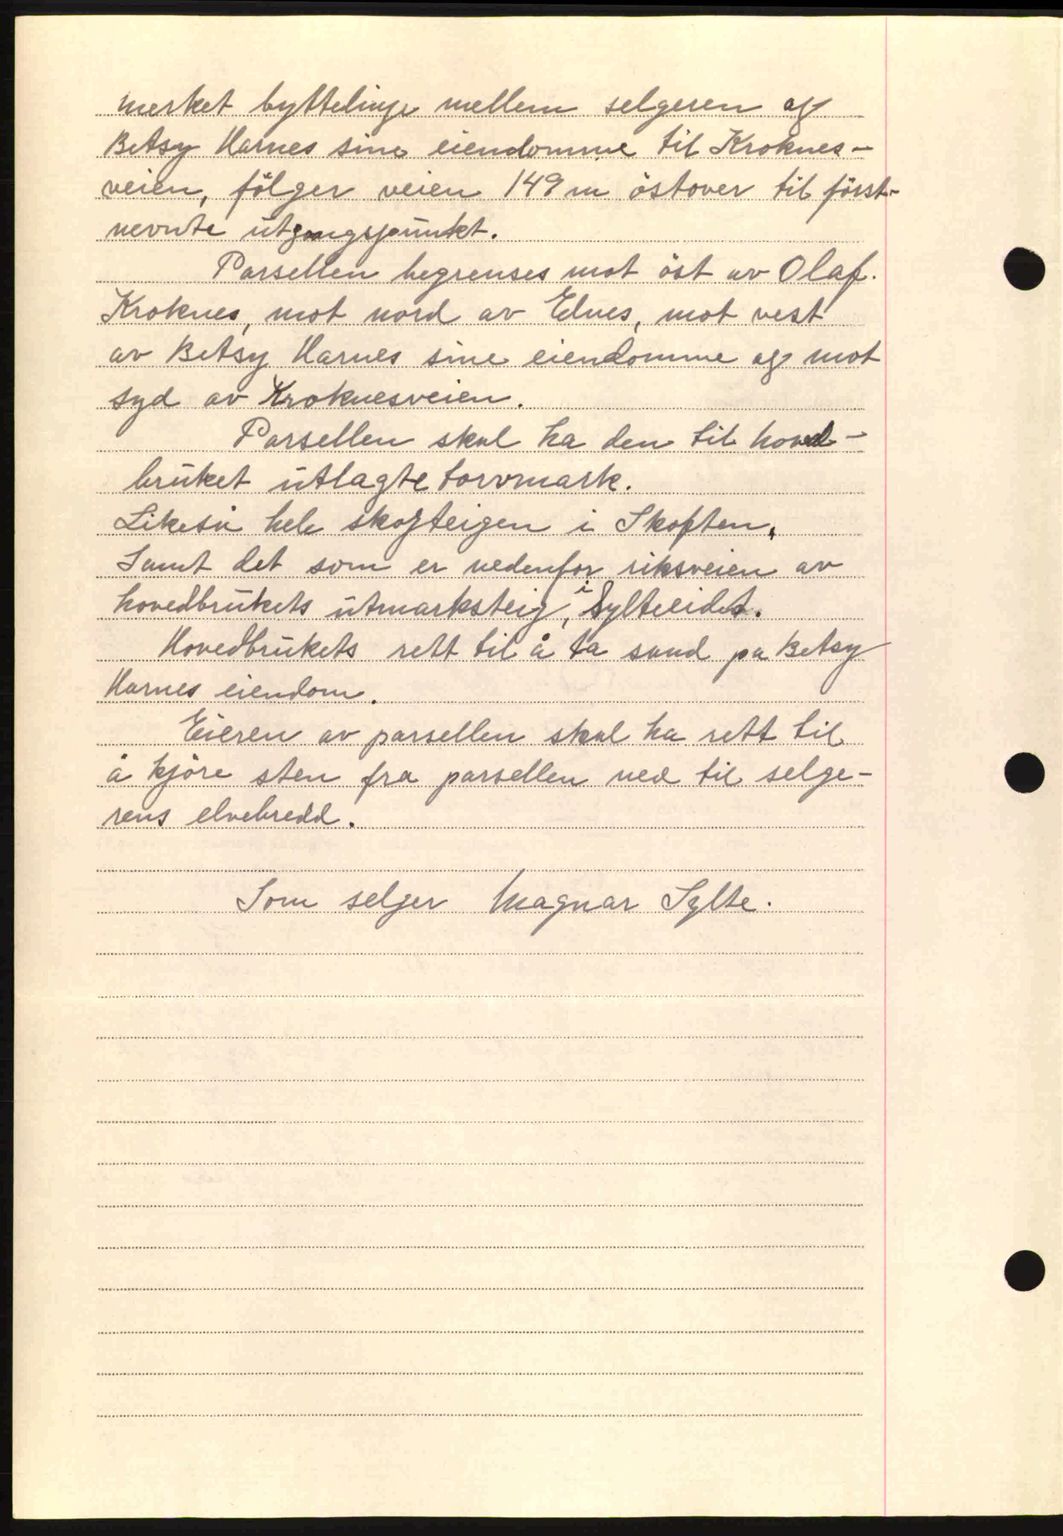 merket byttelinje mellem selgeren og
Betsy Harnes sine eiendomme til Kroknes-
veien, fölger veien 149 m östover til först-
nevnte utgangspunkt.
Parsellen begrenses mot öst av Olaf.
Kroknes, mot nord av Elnes, mot vest
av Betsy Harnes sine eiendomme og mot
syd av Kroknesveien.
Parsellen skal ha den til hoved-
bruket utlagte torvmark.
Likeså hele skogteigen i Skoften.
Samt det som er nedenfor riksveien av
hovedbrukets utmarksteig, i Sylteeidet.
Hovedbrukets rett til å ta sand pa Betsy
Harnes eiendom.
Eieren av parsellen skal ha rett til
å kjöre sten fra parsellen ned til selge-
rens elvebredd.
Som selger Magnar Sylte.